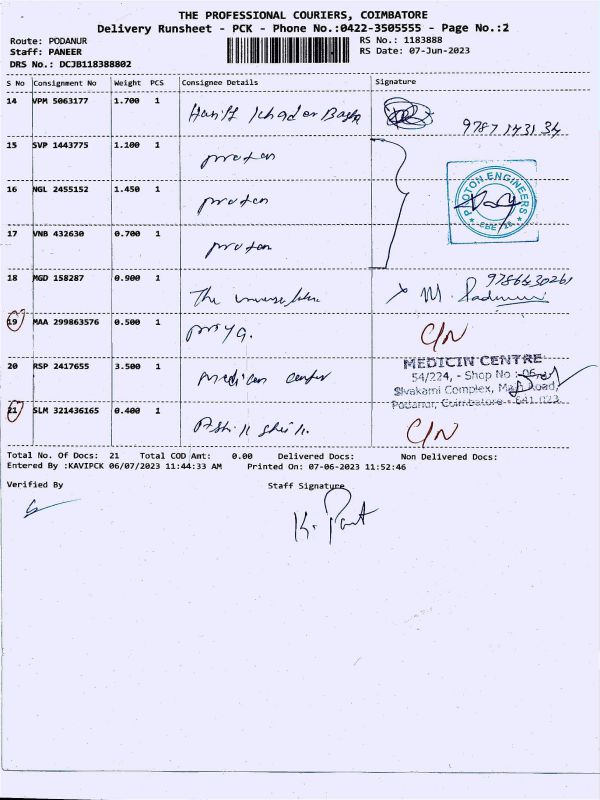 THE PROFESSIONAL COURIERS, COIMBATORE
Delivery Runsheet - PCK - Phone No.:0422-3505555 - Page No.:2
Route: PODANUR RS No.: 1183888
Staff: PANEER RS Date: 07-Jun-2023
DRS No.: DCJB118388802
S No Consignment No Weight PCS Consignee Details Signature
14 VPM 5063177 1.700 1 Haniff Khader Basha
15 SVP 1443775 1.100 1 proton
16 NGL 2455152 1.450 1 proton
PROTON ENGINEERS
CBE
17 VNB 432630 0.700 1 proton
18 MGD 158287 0.900 1 The 9786630261
19 MAA 299863576 0.500 1 C/N
20 RSP 2417655 3.500 1 medican center
MEDICIN CENTRE
54/224, - Shop No :-06
Sivakami Complex, Main Road,
Podanur, Coimbatore - 641 023
21 SLM 321436165 0.400 1 C/N
Total No. Of Docs: 21 Total COD Amt: 0.00 Delivered Docs: Non Delivered Docs:
Entered By :KAVIPCK 06/07/2023 11:44:33 AM Printed On: 07-06-2023 11:52:46
Verified By Staff Signature